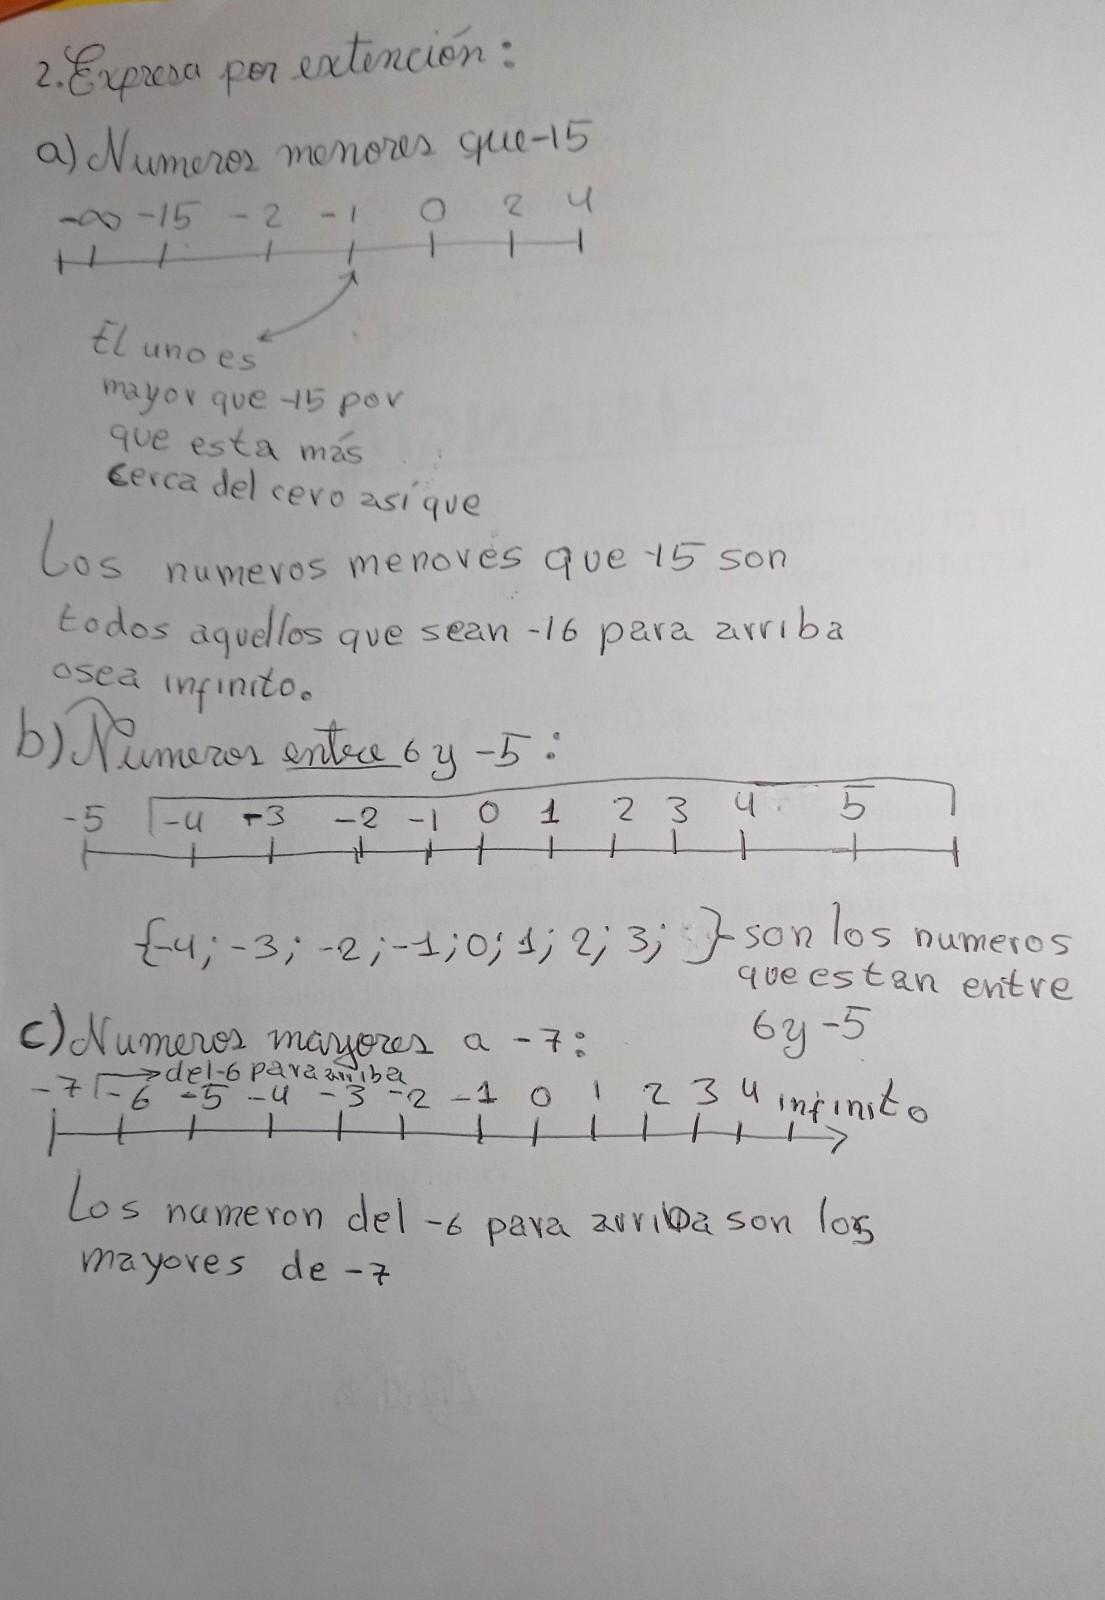 2. Expresa por extención:
a) Numeros menores que -15
-∞ -15 -2 -1 0 2 4
El uno es
mayor que -15 por
que esta más
cerca del cero así que
Los numeros menores que -15 son
todos aquellos que sean -16 para arriba
osea infinito.
b) Numeros entre 6 y -5:
-5 -4 -3 -2 -1 0 1 2 3 4 5
{-4; -3; -2; -1; 0; 1; 2; 3; } son los numeros
que estan entre
6 y -5
c) Numeros mayores a -7:
del -6 para arriba
-7 -6 -5 -4 -3 -2 -1 0 1 2 3 4 infinito
Los numeron del -6 para arriba son los
mayores de -7